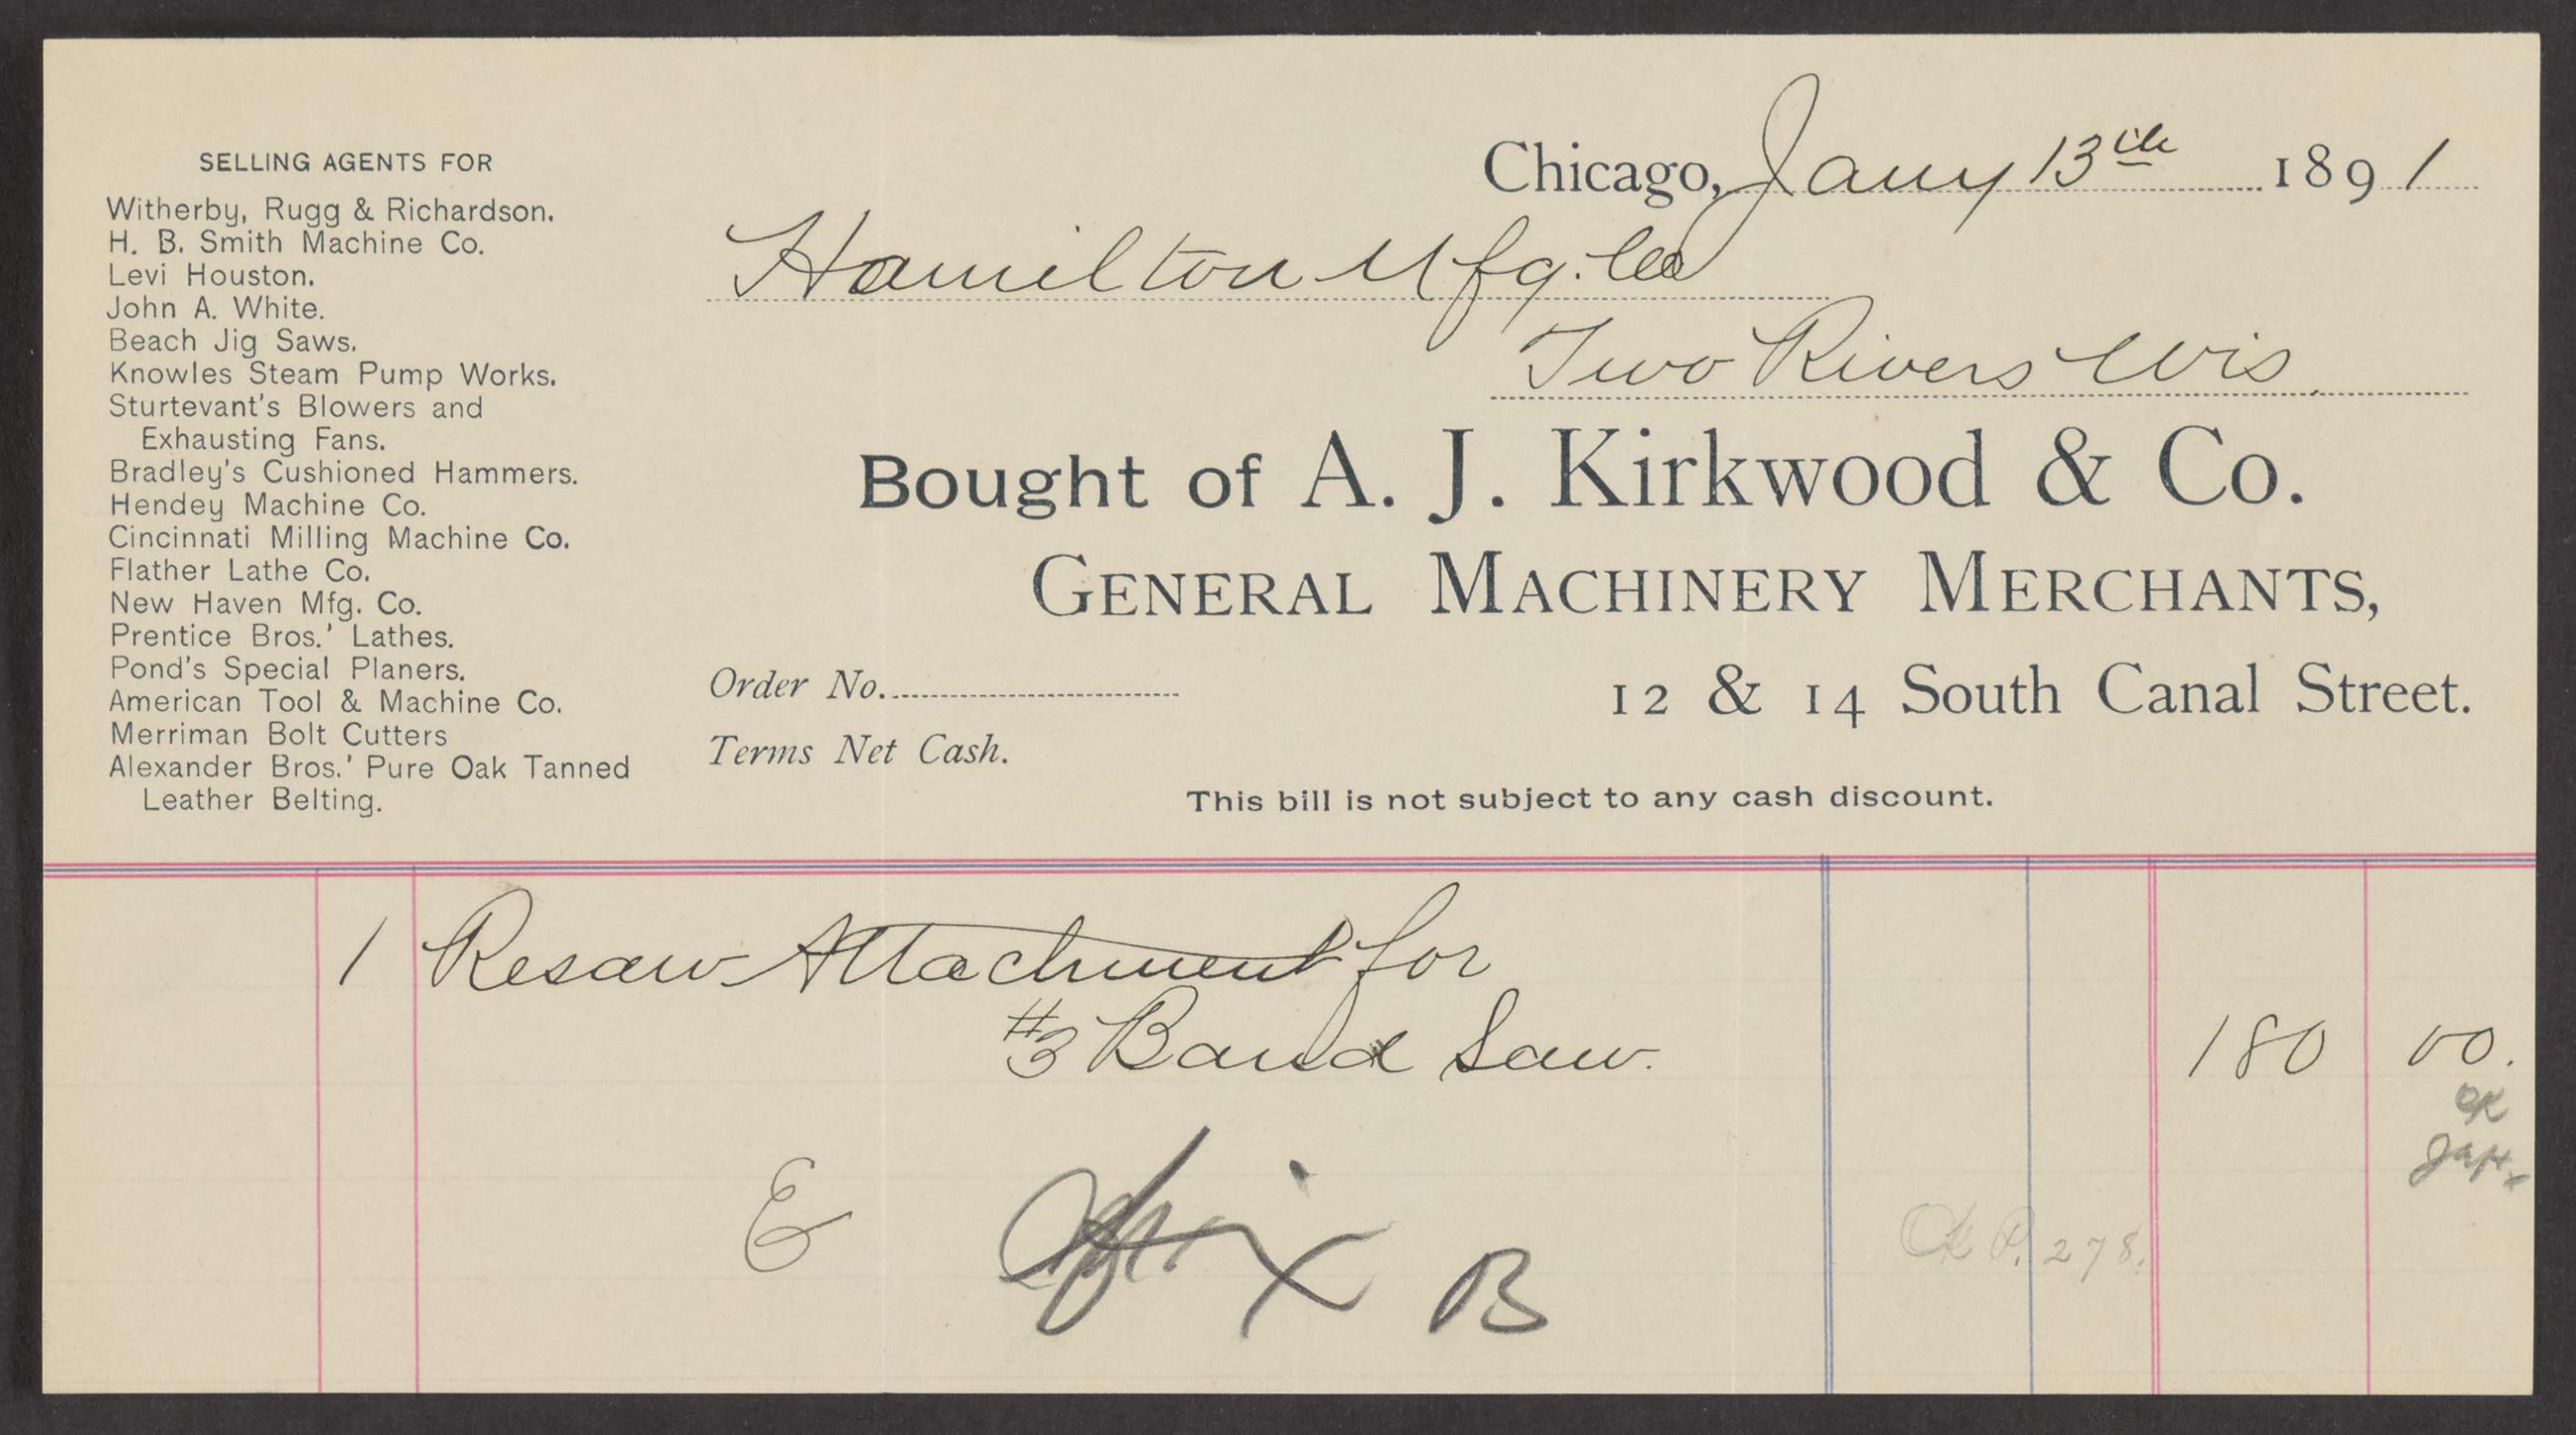 SELLING AGENTS FOR
Witherby, Rugg & Richardson.
H. B. Smith Machine Co.
Levi Houston.
John A. White.
Beach Jig Saws.
Knowles Steam Pump Works.
Sturtevant's Blowers and
Exhausting Fans.
Bradley's Cushioned Hammers.
Hendey Machine Co.
Cincinnati Milling Machine Co.
Flather Lathe Co.
New Haven Mfg. Co.
Prentice Bros.' Lathes.
Pond's Special Planers.
American Tool & Machine Co.
Merriman Bolt Cutters
Alexander Bros.' Pure Oak Tanned
Leather Belting.
Chicago, Jany 13th 1891
Hamilton Mfg. Co
Two Rivers Wis.
Bought of A. J. Kirkwood & Co.
GENERAL MACHINERY MERCHANTS,
12 & 14 South Canal Street.
Order No.
Terms Net Cash.
This bill is not subject to any cash discount.
1 Resaw Attachment for
#3 Band Saw. 180 00.
OK
E
B
P. 278.